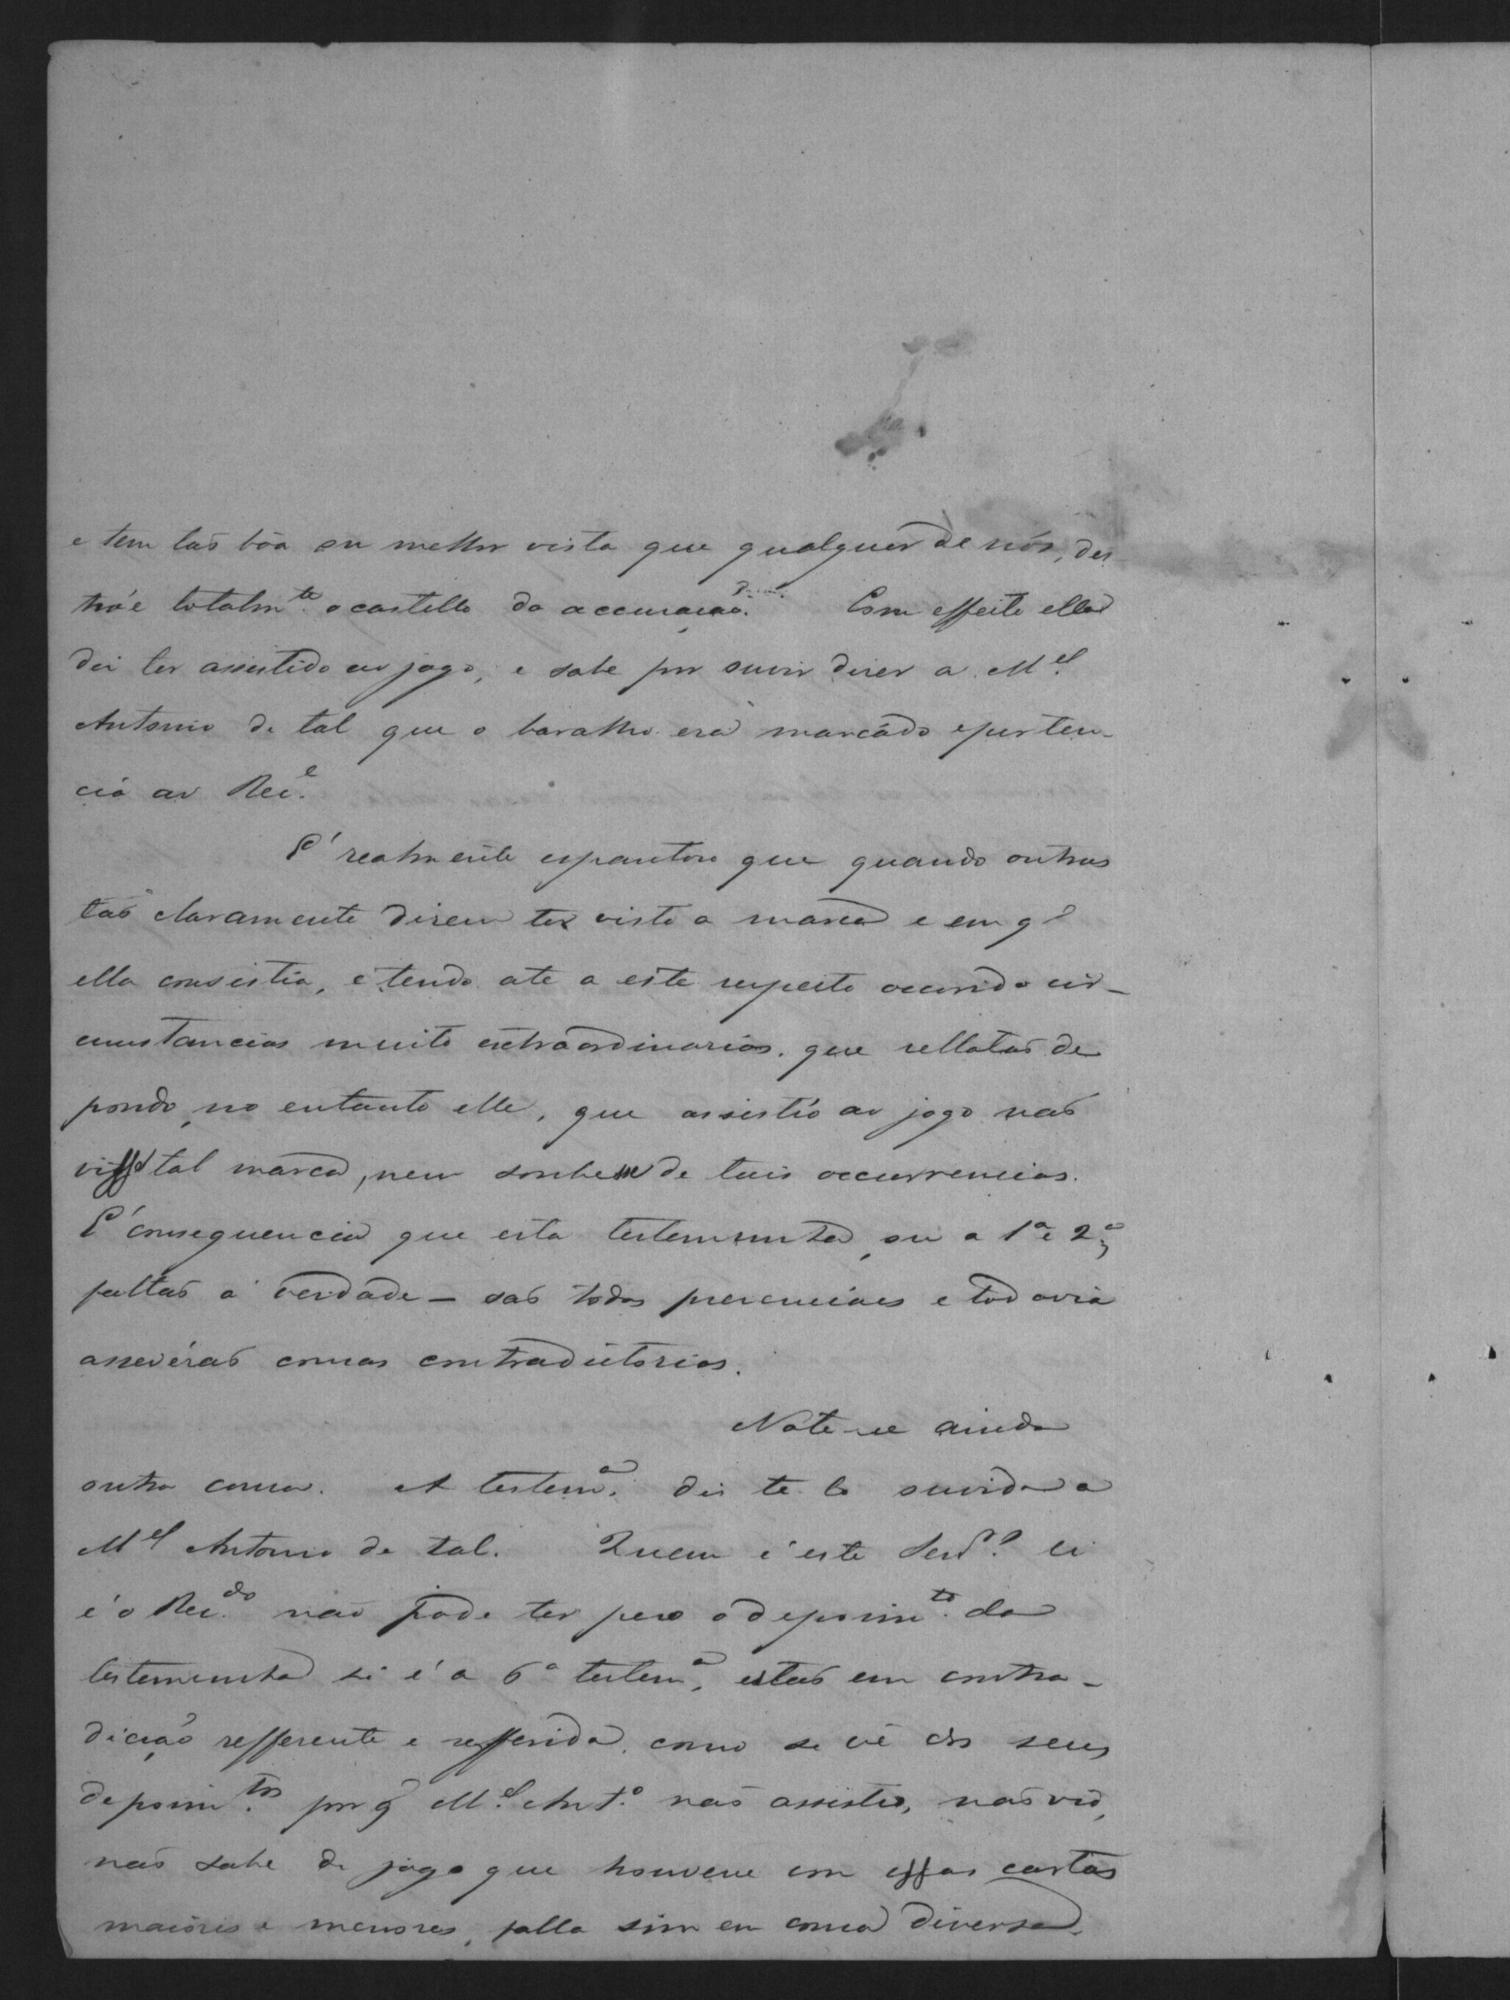 e tem tão bôa ou melhor vista que qualquer de nós, des
tróe totalm.te o castello da accusação. Com effeito ella
diz ter assistido ao jogo, e sabe por ouvir dizer a M.el
Antonio de tal que o baralho era marcado e perten-
cia ao Rec.e
E' realmente espantoso que quando outras
tão claramente dizem ter visto a marca e em q.e
ella consistia, e tendo até a este respeito occorrido cir-
cumstancias muito extraordinarias, que rellatão de
pondo, no entanto elle, que assistio ao jogo não
visse tal marca, nem soubesse de tais occurrencias.
E' consequencia que esta testemunha, ou a 1ª e 2ª,
faltão á verdade — são todas prezenciaes e todavia
asseverão cousas contradictorias.
Note-se ainda
outra cousa. A testem.a diz te-lo ouvido a
M.el Antonio de tal. Quem é este Senr.? si
é o Rec.do não póde ter pezo o depoim.to da
testemunha si é a 6ª testem.a, estão em contra-
dicção refferente e refferida, como se vê dos seus
depoim.tos porq M.el Ant.o não assistio, não vio,
não sabe de jogo que houvesse com essas cartas
maiores e menores, falla sim em cousa diversa.